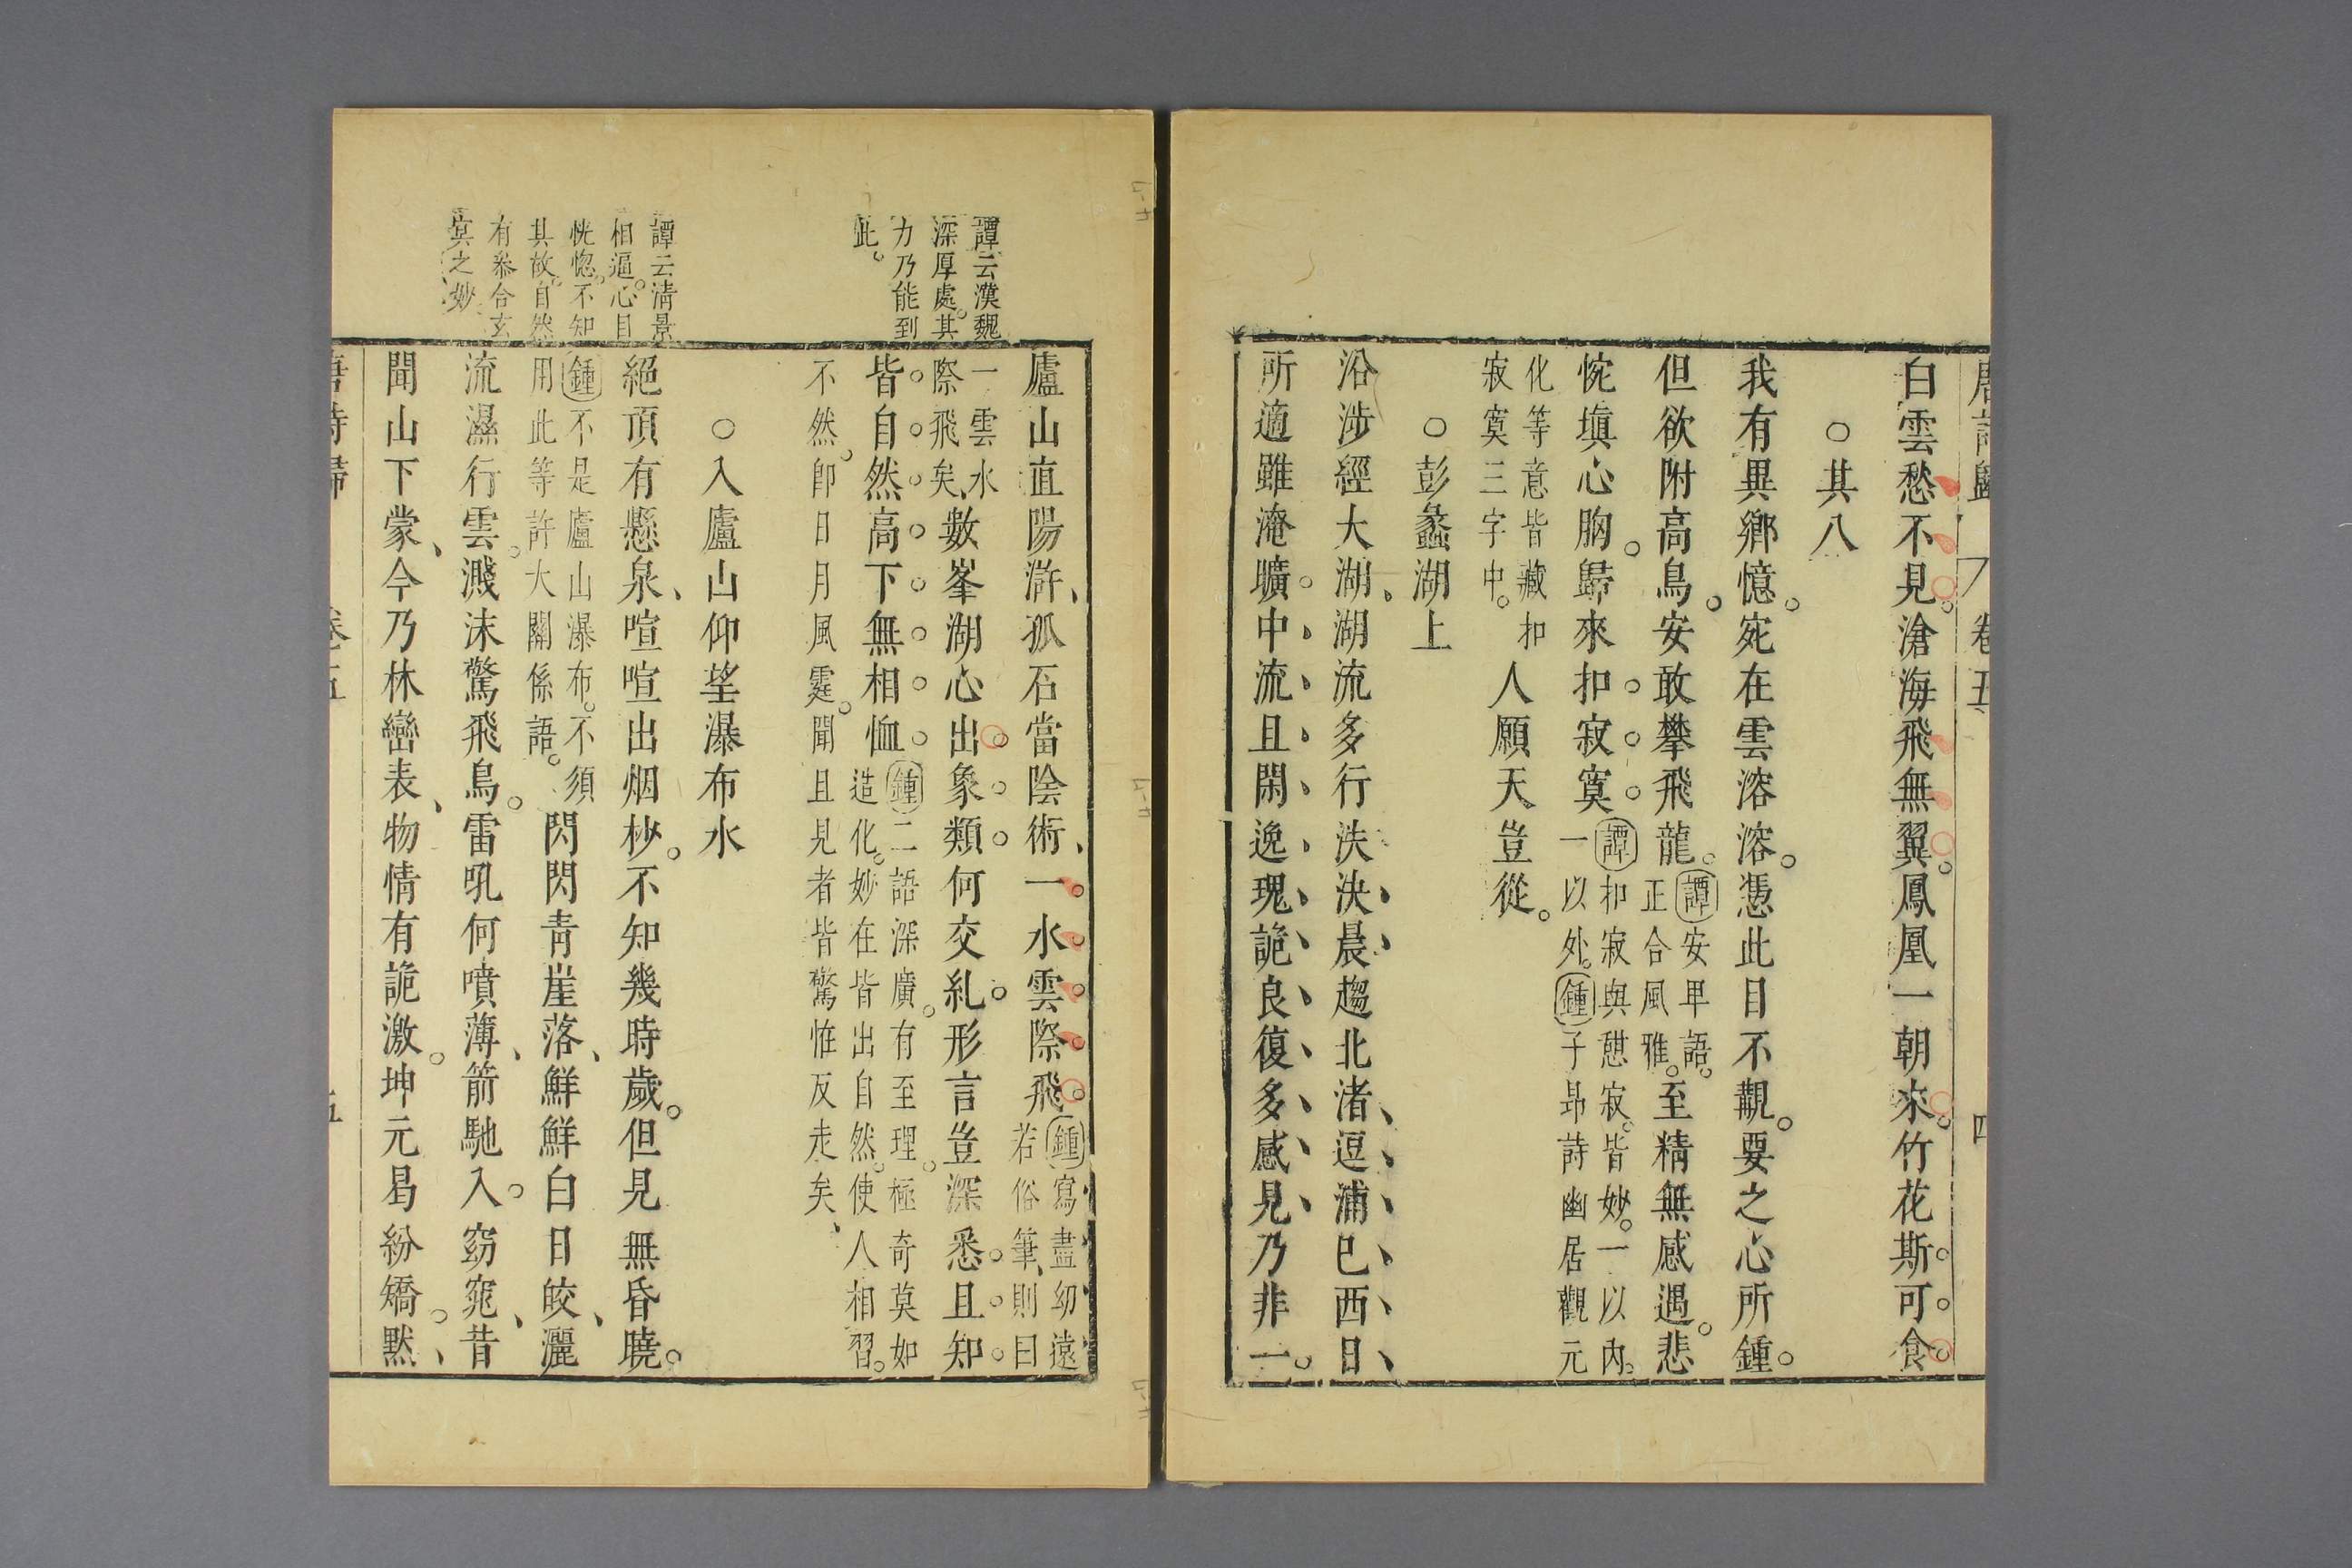 唐詩歸 卷五 四
白雲愁不見。滄海飛無翼。鳳凰一朝來。竹花斯可食
○其八
我有異鄉憶。宛在雲溶溶。憑此目不覯。要之心所鍾。
但欲附高鳥。安敢攀飛龍。譚安卑語。正合風雅。至精無感遇。悲
惋填心胸。歸來扣寂寞譚扣寂與憩寂。皆妙。一以內。一以外。鍾子昂詩幽居觀元
化等意皆藏扣寂寞三字中。人願天豈從。
○彭蠡湖上
沿涉經大湖、湖流多行泆決晨趨北渚、逗浦已西日
所適雖淹曠。中流且閑逸瑰詭良復多感見乃非一。
譚云漢魏
深厚處。其
力乃能到
此。
譚云清景
相逼。心目
恍惚。不知
其故。自然
有叅合玄
冥之妙
廬山直陽滸、孤石當陰術、一水雲際飛。鍾寫盡幼遠若俗筆、則曰
一雲水際飛矣、數峯湖心出。象類何交糺。形言豈深悉。且知
皆自然高下無相恤鍾二語深廣。有至理。極奇莫如造化。妙在皆出自然。使人相習。
不然。卽日月風霆。聞且見者皆驚惟反走矣、
○入廬山仰望瀑布水
絕頂有懸泉、喧喧出烟杪。不知幾時歲。但見無昏曉。
鍾不是廬山瀑布。不須用此等許大關係語。閃閃青崖落、鮮鮮白日皎、灑
流濕行雲。濺沫驚飛鳥。雷吼何噴薄、箭馳入窈窕、昔
聞山下蒙、今乃林巒表、物情有詭激。坤元曷紛矯。默、
唐詩歸 卷五 五